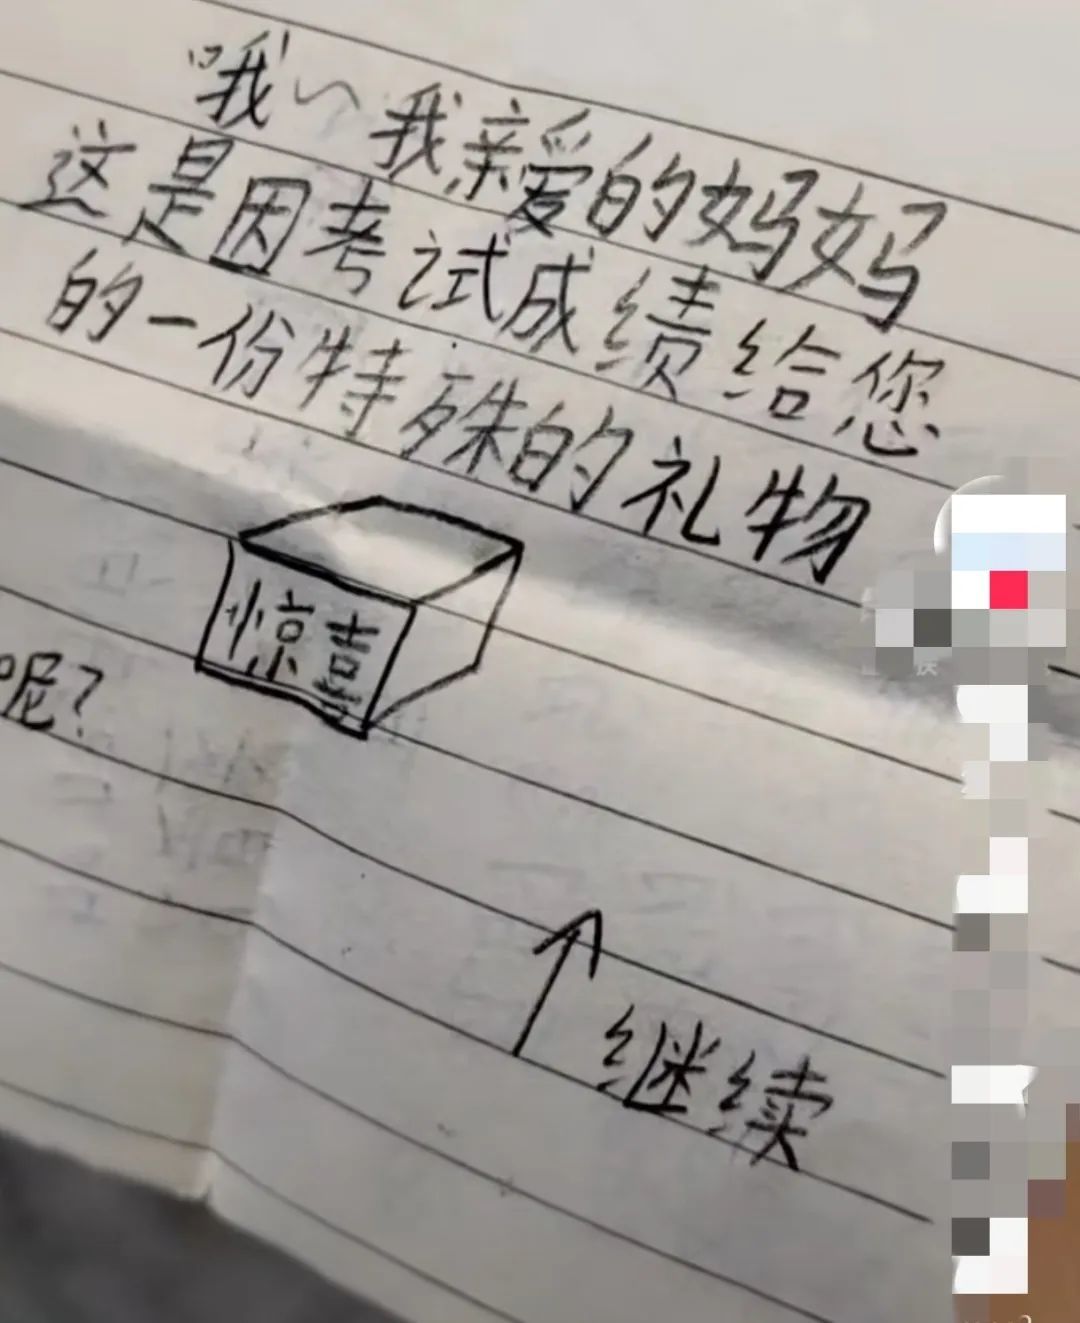 哦~我亲爱的妈妈
这是因考试成绩给您
的一份特殊的礼物
惊喜
呢?
继续